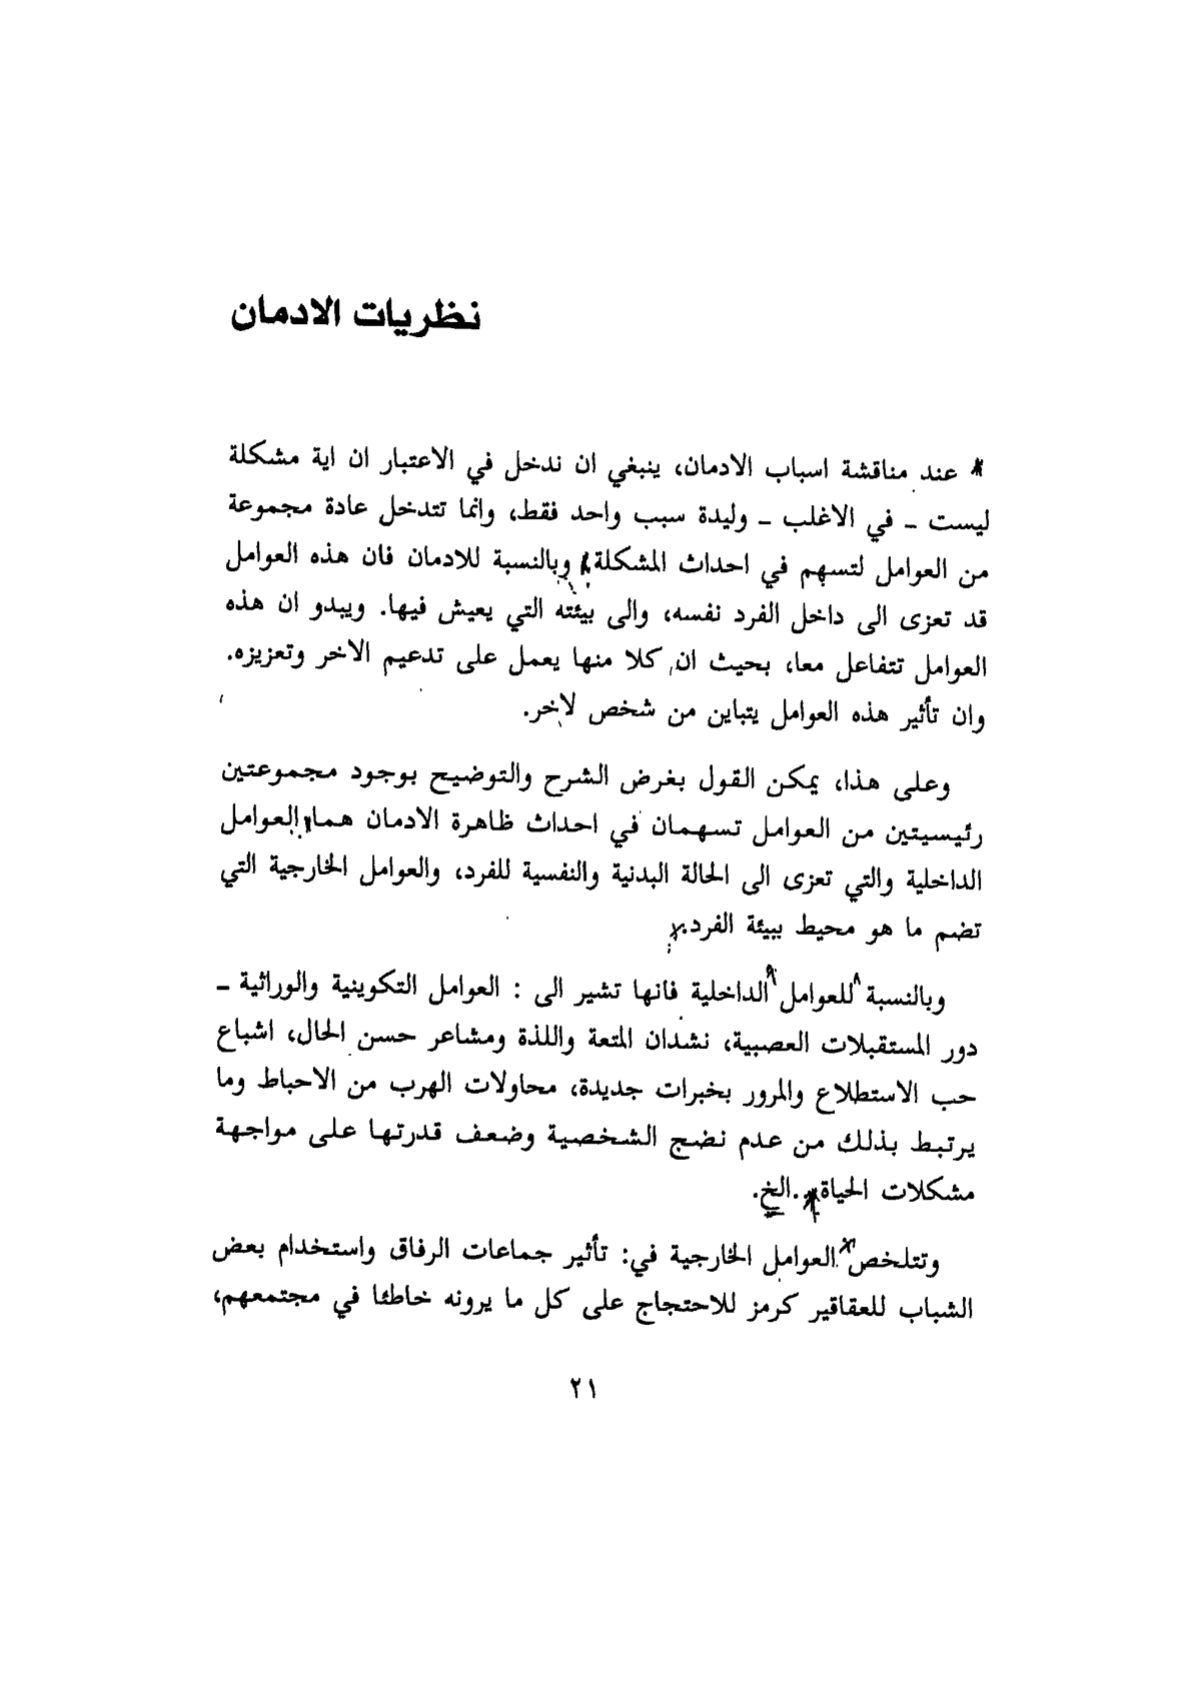 نظريات الادمان
* عند مناقشة اسباب الادمان، ينبغي ان ندخل في الاعتبار ان اية مشكلة
ليست ـ في الاغلب ـ وليدة سبب واحد فقط، وانما تتدخل عادة مجموعة
من العوامل لتسهم في احداث المشكلة، وبالنسبة للادمان فان هذه العوامل
قد تعزى الى داخل الفرد نفسه، والى بيئته التي يعيش فيها. ويبدو ان هذه
العوامل تتفاعل معا، بحيث ان كلا منها يعمل على تدعيم الاخر وتعزيزه.
وان تأثير هذه العوامل يتباين من شخص لاخر.
وعلى هذا، يمكن القول بغرض الشرح والتوضيح بوجود مجموعتين
رئيسيتين من العوامل تسهمان في احداث ظاهرة الادمان هما العوامل
الداخلية والتي تعزى الى الحالة البدنية والنفسية للفرد، والعوامل الخارجية التي
تضم ما هو محيط ببيئة الفرد.
وبالنسبة للعوامل الداخلية فانها تشير الى : العوامل التكوينية والوراثية ـ
دور المستقبلات العصبية، نشدان المتعة واللذة ومشاعر حسن الحال، اشباع
حب الاستطلاع والمرور بخبرات جديدة، محاولات الهرب من الاحباط وما
يرتبط بذلك من عدم نضج الشخصية وضعف قدرتها على مواجهة
مشكلات الحياة...الخ.
وتتلخص العوامل الخارجية في: تأثير جماعات الرفاق واستخدام بعض
الشباب للعقاقير كرمز للاحتجاج على كل ما يرونه خاطئا في مجتمعهم،
٢١